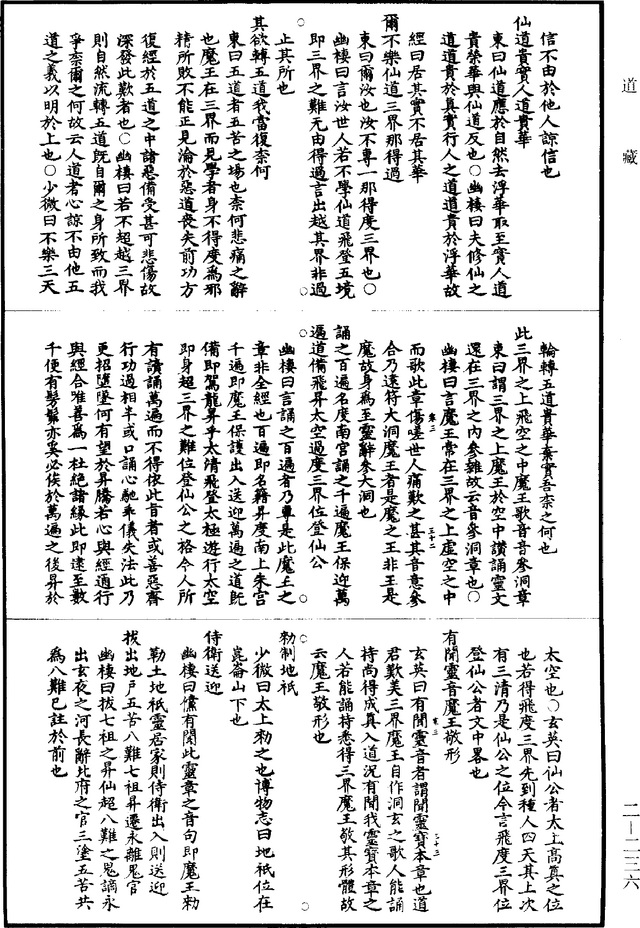 道藏
信不由於他人諒信也
仙道貴實人道貴華
東曰仙道應於自然去浮華取至實人道
貴榮華與仙道反也○幽棲曰夫修仙之
道道貴於真實行人之道道貴於浮華故
經曰居其實不居其華
爾不樂仙道三界那得過
東曰爾汝也汝不專一那得度三界也○
幽棲曰言汝世人若不學仙道飛登五境
即三界之難无由得過言出越其界非過
止其所也
其欲轉五道我當復奈何
東曰五道者五苦之場也奈何悲痛之辭
也魔王在三界而見學者身不得度爲邪
精所敗不能正見淪於惡道喪失前功方
復經於五道之中諸惡備受甚可悲傷故
深發此歎者也○幽棲曰若不超越三界
則自然流轉五道旣自爾之身所致而我
爭奈爾之何故云人道者心諒不由他五
道之義以明於上也○少微曰不樂三天
輪轉五道貴華棄實吾奈之何也
此三界之上飛空之中魔王歌音音參洞章
東曰謂三界之上魔王於空中讚誦靈文
還在三界之內參雜故云音參洞章也○
幽棲曰言魔王常在三界之上虛空之中
而歌此章傷嗟世人痛歎之甚其音意參
合乃遠符大洞魔王者是魔之王非王是
魔故身爲至靈辭參大洞也
誦之百遍名度南宮誦之千遍魔王保迎萬
遍道備飛昇太空過度三界位登仙公
幽棲曰言誦之百遍者乃單是此魔王之
章非全經也百遍即名籍昇度南上朱宮
千遍即魔王保護出入送迎萬遍之道旣
備即駕龍昇乎太清飛登太極遊行太空
即身超三界之難位登仙公之格令人所
有讀誦萬遍而不得依此旨者或善惡齊
行功過相半或口誦心馳乖儀失法此乃
更招墮墜何有望於昇騰若心與經通行
與經合唯善爲一杜絶諸緣此即遠至數
千便有髣髴亦奚必俟於萬遍之後昇於
太空也○玄英曰仙公者太上高真之位
也若得飛度三界先到種人四天其上次
有三清乃是仙公之位今言飛度三界位
登仙公者文中畧也
有聞靈音魔王敬形
玄英曰有聞靈音者謂聞靈寶本章也道
君歎美三界魔王自作洞玄之歌人能誦
持尚得成真入道況有聞我靈寶本章之
人若能誦持悉得三界魔王敬其形體故
云魔王敬形也
勑制地祇
少微曰太上勑之也博物志曰地祇位在
崑崙山下也
侍衛送迎
幽棲曰儻有聞此靈章之音句即魔王勑
勒土地祇靈居家則侍衛出入則送迎
拔出地戸五苦八難七祖昇遷永離鬼官
幽棲曰拔七祖之昇仙超八難之鬼讁永
出玄夜之河長辭北府之官三塗五苦共
爲八難已註於前也
二—二三六